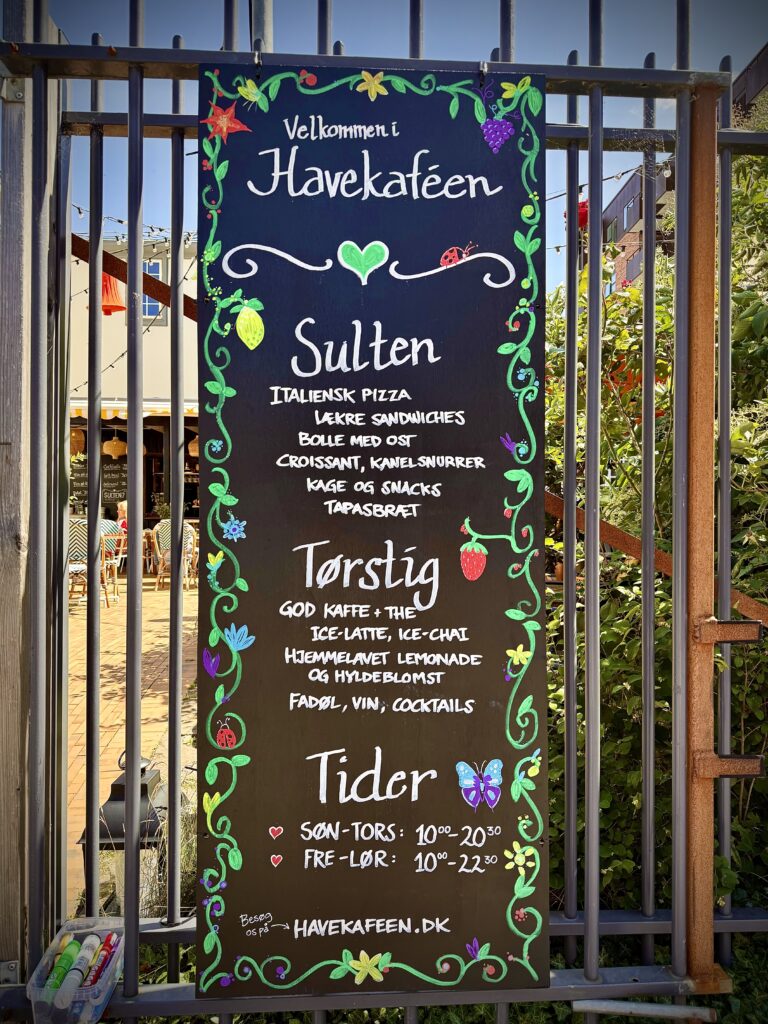 Velkommen i
Havekaféen
Sulten
ITALIENSK PIZZA
LÆKRE SANDWICHES
BOLLE MED OST
CROISSANT, KANELSNURRER
KAGE OG SNACKS
TAPASBRÆT
Tørstig
GOD KAFFE + THE
ICE-LATTE, ICE-CHAI
HJEMMELAVET LEMONADE
OG HYLDEBLOMST
FADØL, VIN, COCKTAILS
Tider
SØN-TORS: 10⁰⁰-20³⁰
FRE-LØR: 10⁰⁰-22³⁰
Besøg
os på → HAVEKAFEEN.DK
SULTEN?